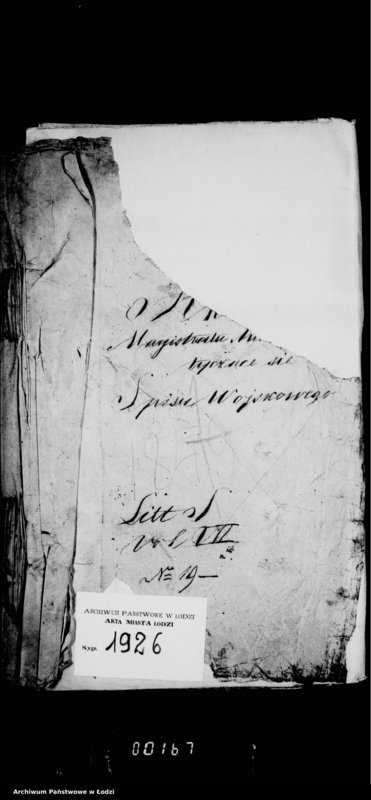 Magistratu
tyczące się
Spisu Wojskowego
Litt S
Vol VII
No 19 —
ARCHIWUM PAŃSTWOWE W ŁODZI
AKTA MIASTA ŁODZI
Sygn. 1926
00167
Archiwum Państwowe w Łodzi